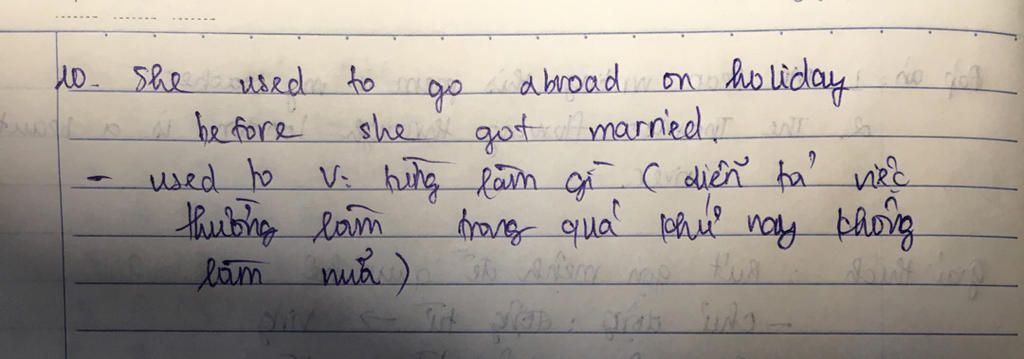 10. She used to go abroad on holiday
before she got married.
- used to V: từng làm gì (diễn tả việc
thường làm trong quá khứ nay không
làm nữa)